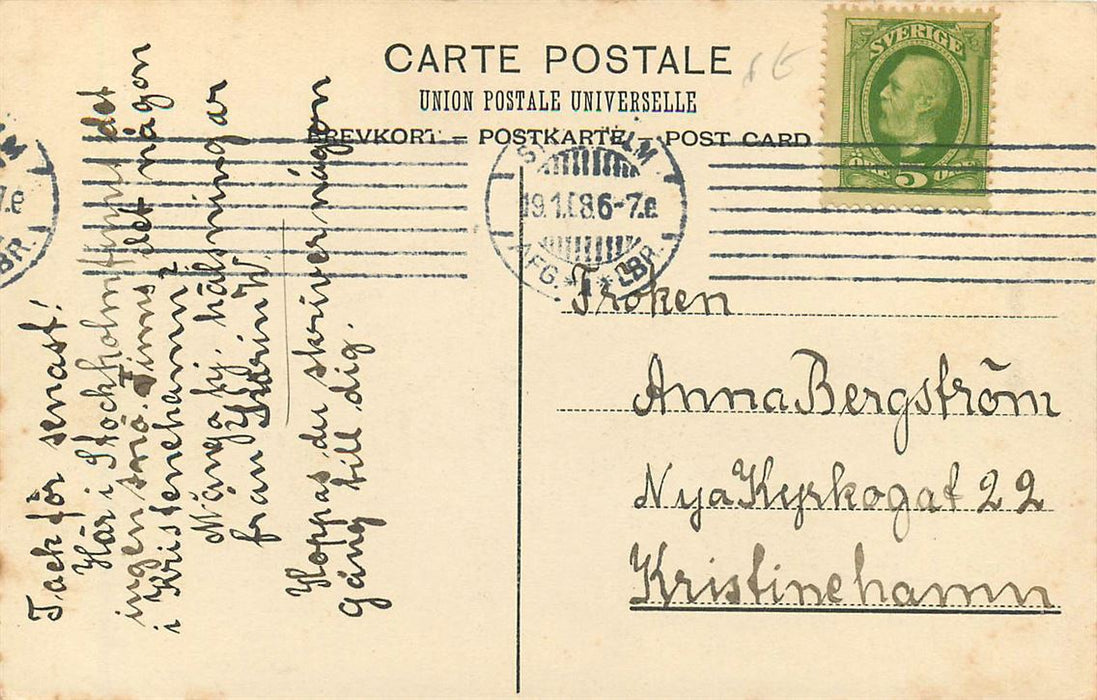 CARTE POSTALE
UNION POSTALE UNIVERSELLE
BREVKORT – POSTKARTE – POST CARD
SVERIGE
5
19.1.08 6-7.e
AFG. * 1 * LBR.
7.e
BR.
Tack för senast!
Här i Stockholm det
ingen snö. Finns det någon
i Kristenehamn?
Många hj. hälsningar
från Karin W.
Hoppas du skriver någon
gång till dig.
Fröken
Anna Bergström
Nya Kyrkogat 22
Kristinehamn